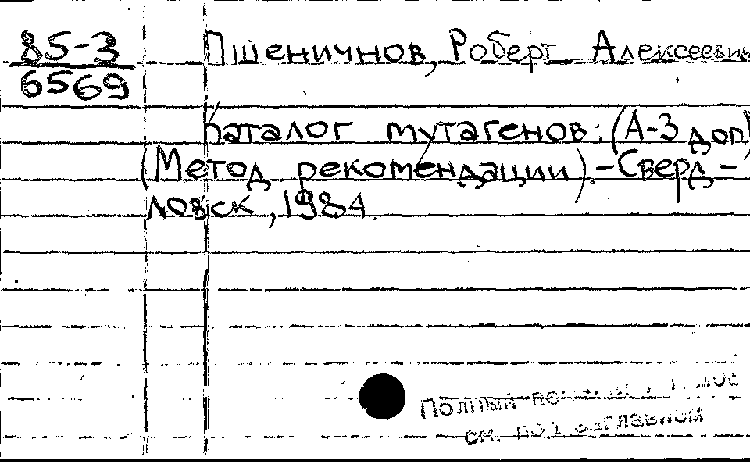 85-3
6569
Пшеничнов, Роберт Алексеевич
Каталог мутагенов: (А-З доп)
(Метод рекомендации).-Сверд-
ловск, 1984.
Полный
см. под заглавной